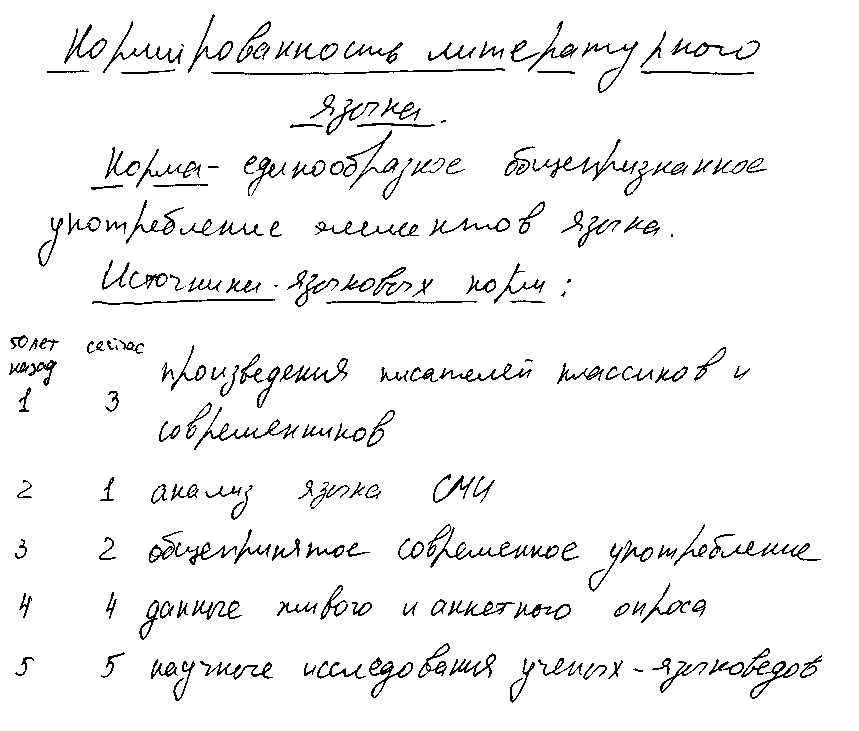 Нормированность литературного
языка.
Норма - единообразное общепризнанное
употребление элементов языка.
Источники языковых норм:
50 лет назад сейчас
1 3 произведения писателей классиков и
современников
2 1 анализ языка СМИ
3 2 общепринятое современное употребление
4 4 данные живого и анкетного опроса
5 5 научные исследования ученых-языковедов